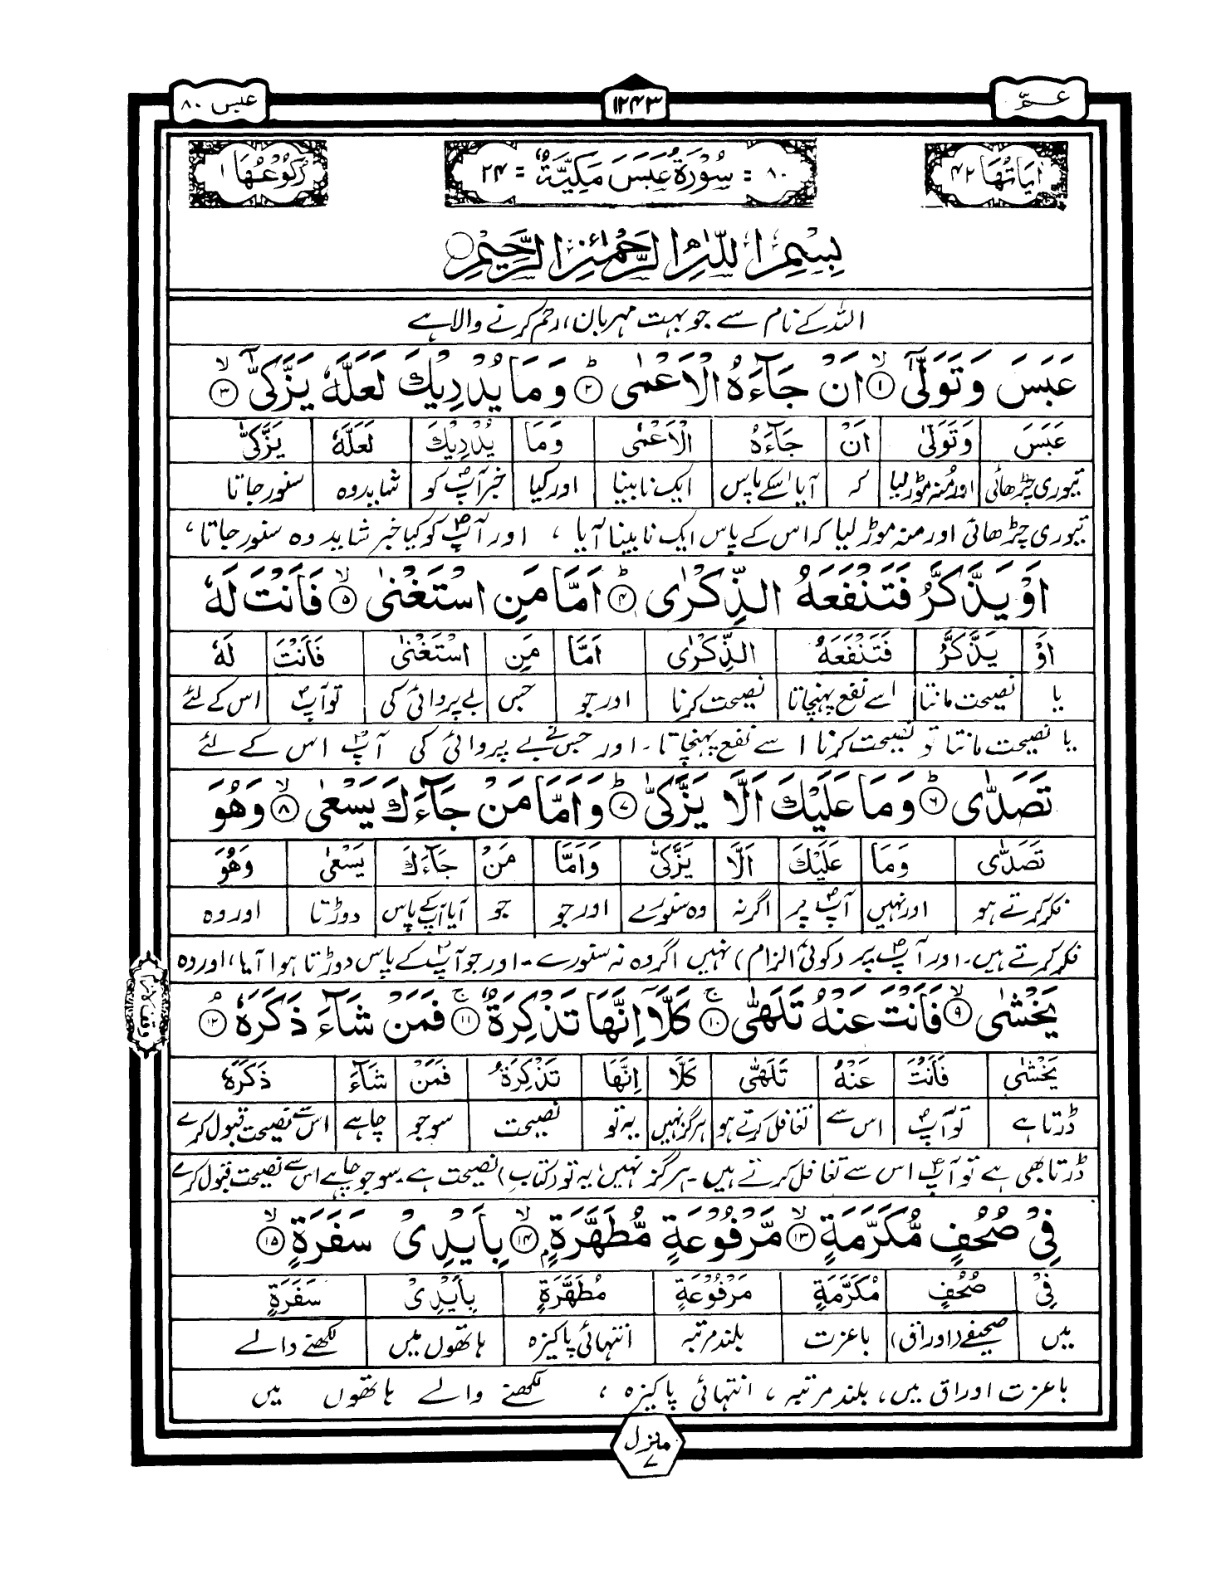 عمّ
۱۲۴۳
عبس ۸۰
اٰيَاتُهَا ۴۲
۸۰ = سُوْرَةُ عَبَسَ مَكِّيَّةٌ = ۲۴
رُكُوْعُهَا ۱
بِسْمِ اللّٰهِ الرَّحْمٰنِ الرَّحِيْمِ
اللہ کے نام سے جو بہت مہربان، رحم کرنے والا ہے
عَبَسَ وَتَوَلّٰٓى ۙ﴿۱﴾ اَنْ جَآءَهُ الْاَعْمٰى ؕ﴿۲﴾ وَمَا يُدْرِيْكَ لَعَلَّهٗ يَزَّكّٰٓى ۙ﴿۳﴾
عَبَسَ وَتَوَلّٰى اَنْ جَآءَهُ الْاَعْمٰى وَمَا يُدْرِيْكَ لَعَلَّهٗ يَزَّكّٰى
تیوری چڑھائی اور منہ موڑ لیا کہ آیا اسکے پاس ایک نابینا اور کیا خبر آپؐ کو شاید وہ سنور جاتا
تیوری چڑھائی اور منہ موڑ لیا کہ اس کے پاس ایک نابینا آیا ، اور آپؐ کو کیا خبر شاید وہ سنور جاتا ،
اَوْ يَذَّكَّرُ فَتَنْفَعَهُ الذِّكْرٰى ؕ﴿۴﴾ اَمَّا مَنِ اسْتَغْنٰى ۙ﴿۵﴾ فَاَنْتَ لَهٗ
اَوْ يَذَّكَّرُ فَتَنْفَعَهُ الذِّكْرٰى اَمَّا مَنِ اسْتَغْنٰى فَاَنْتَ لَهٗ
یا نصیحت مانتا اسے نفع پہنچاتا نصیحت کرنا اور جو جس بے پروائی کی تو آپؐ اس کے لئے
یا نصیحت مانتا تو نصیحت کرنا اسے نفع پہنچاتا۔ اور جس نے بے پروائی کی آپؐ اس کے لئے
تَصَدّٰى ؕ﴿۶﴾ وَمَا عَلَيْكَ اَلَّا يَزَّكّٰى ؕ﴿۷﴾ وَاَمَّا مَنْ جَآءَكَ يَسْعٰى ۙ﴿۸﴾ وَهُوَ
تَصَدّٰى وَمَا عَلَيْكَ اَلَّا يَزَّكّٰى وَاَمَّا مَنْ جَآءَكَ يَسْعٰى وَهُوَ
فکر کرتے ہو اور نہیں آپؐ پر اگر نہ وہ سنورے اور جو جو آیا آپکے پاس دوڑتا اور وہ
فکر کرتے ہیں۔ اور آپؐ پر (کوئی الزام) نہیں اگر وہ نہ سنورے۔ اور جو آپؐ کے پاس دوڑتا ہوا آیا، اور وہ
يَخْشٰى ۙ﴿۹﴾ فَاَنْتَ عَنْهُ تَلَهّٰى ۚ﴿۱۰﴾ كَلَّاۤ اِنَّهَا تَذْكِرَةٌ ۚ﴿۱۱﴾ فَمَنْ شَآءَ ذَكَرَهٗ ﴿۱۲﴾
يَخْشٰى فَاَنْتَ عَنْهُ تَلَهّٰى كَلَّا اِنَّهَا تَذْكِرَةٌ فَمَنْ شَآءَ ذَكَرَهٗ
ڈرتا ہے تو آپؐ اس سے تغافل کرتے ہو ہرگز نہیں یہ تو نصیحت سو جو چاہے اس سے نصیحت قبول کرے
ڈرتا بھی ہے تو آپؐ اس سے تغافل کرتے ہیں۔ ہرگز نہیں یہ تو (کتاب) نصیحت ہے۔ سو جو چاہے اس سے نصیحت قبول کرے
فِىْ صُحُفٍ مُّكَرَّمَةٍ ۙ﴿۱۳﴾ مَّرْفُوْعَةٍ مُّطَهَّرَةٍ ۙ﴿۱۴﴾ بِاَيْدِىْ سَفَرَةٍ ۙ﴿۱۵﴾
فِىْ صُحُفٍ مُكَرَّمَةٍ مَرْفُوْعَةٍ مُطَهَّرَةٍ بِاَيْدِىْ سَفَرَةٍ
میں صحیفے (اوراق) باعزت بلند مرتبہ انتہائی پاکیزہ ہاتھوں میں لکھنے والے
باعزت اوراق میں، بلند مرتبہ ، انتہائی پاکیزہ ، لکھنے والے ہاتھوں میں
منزل ۷